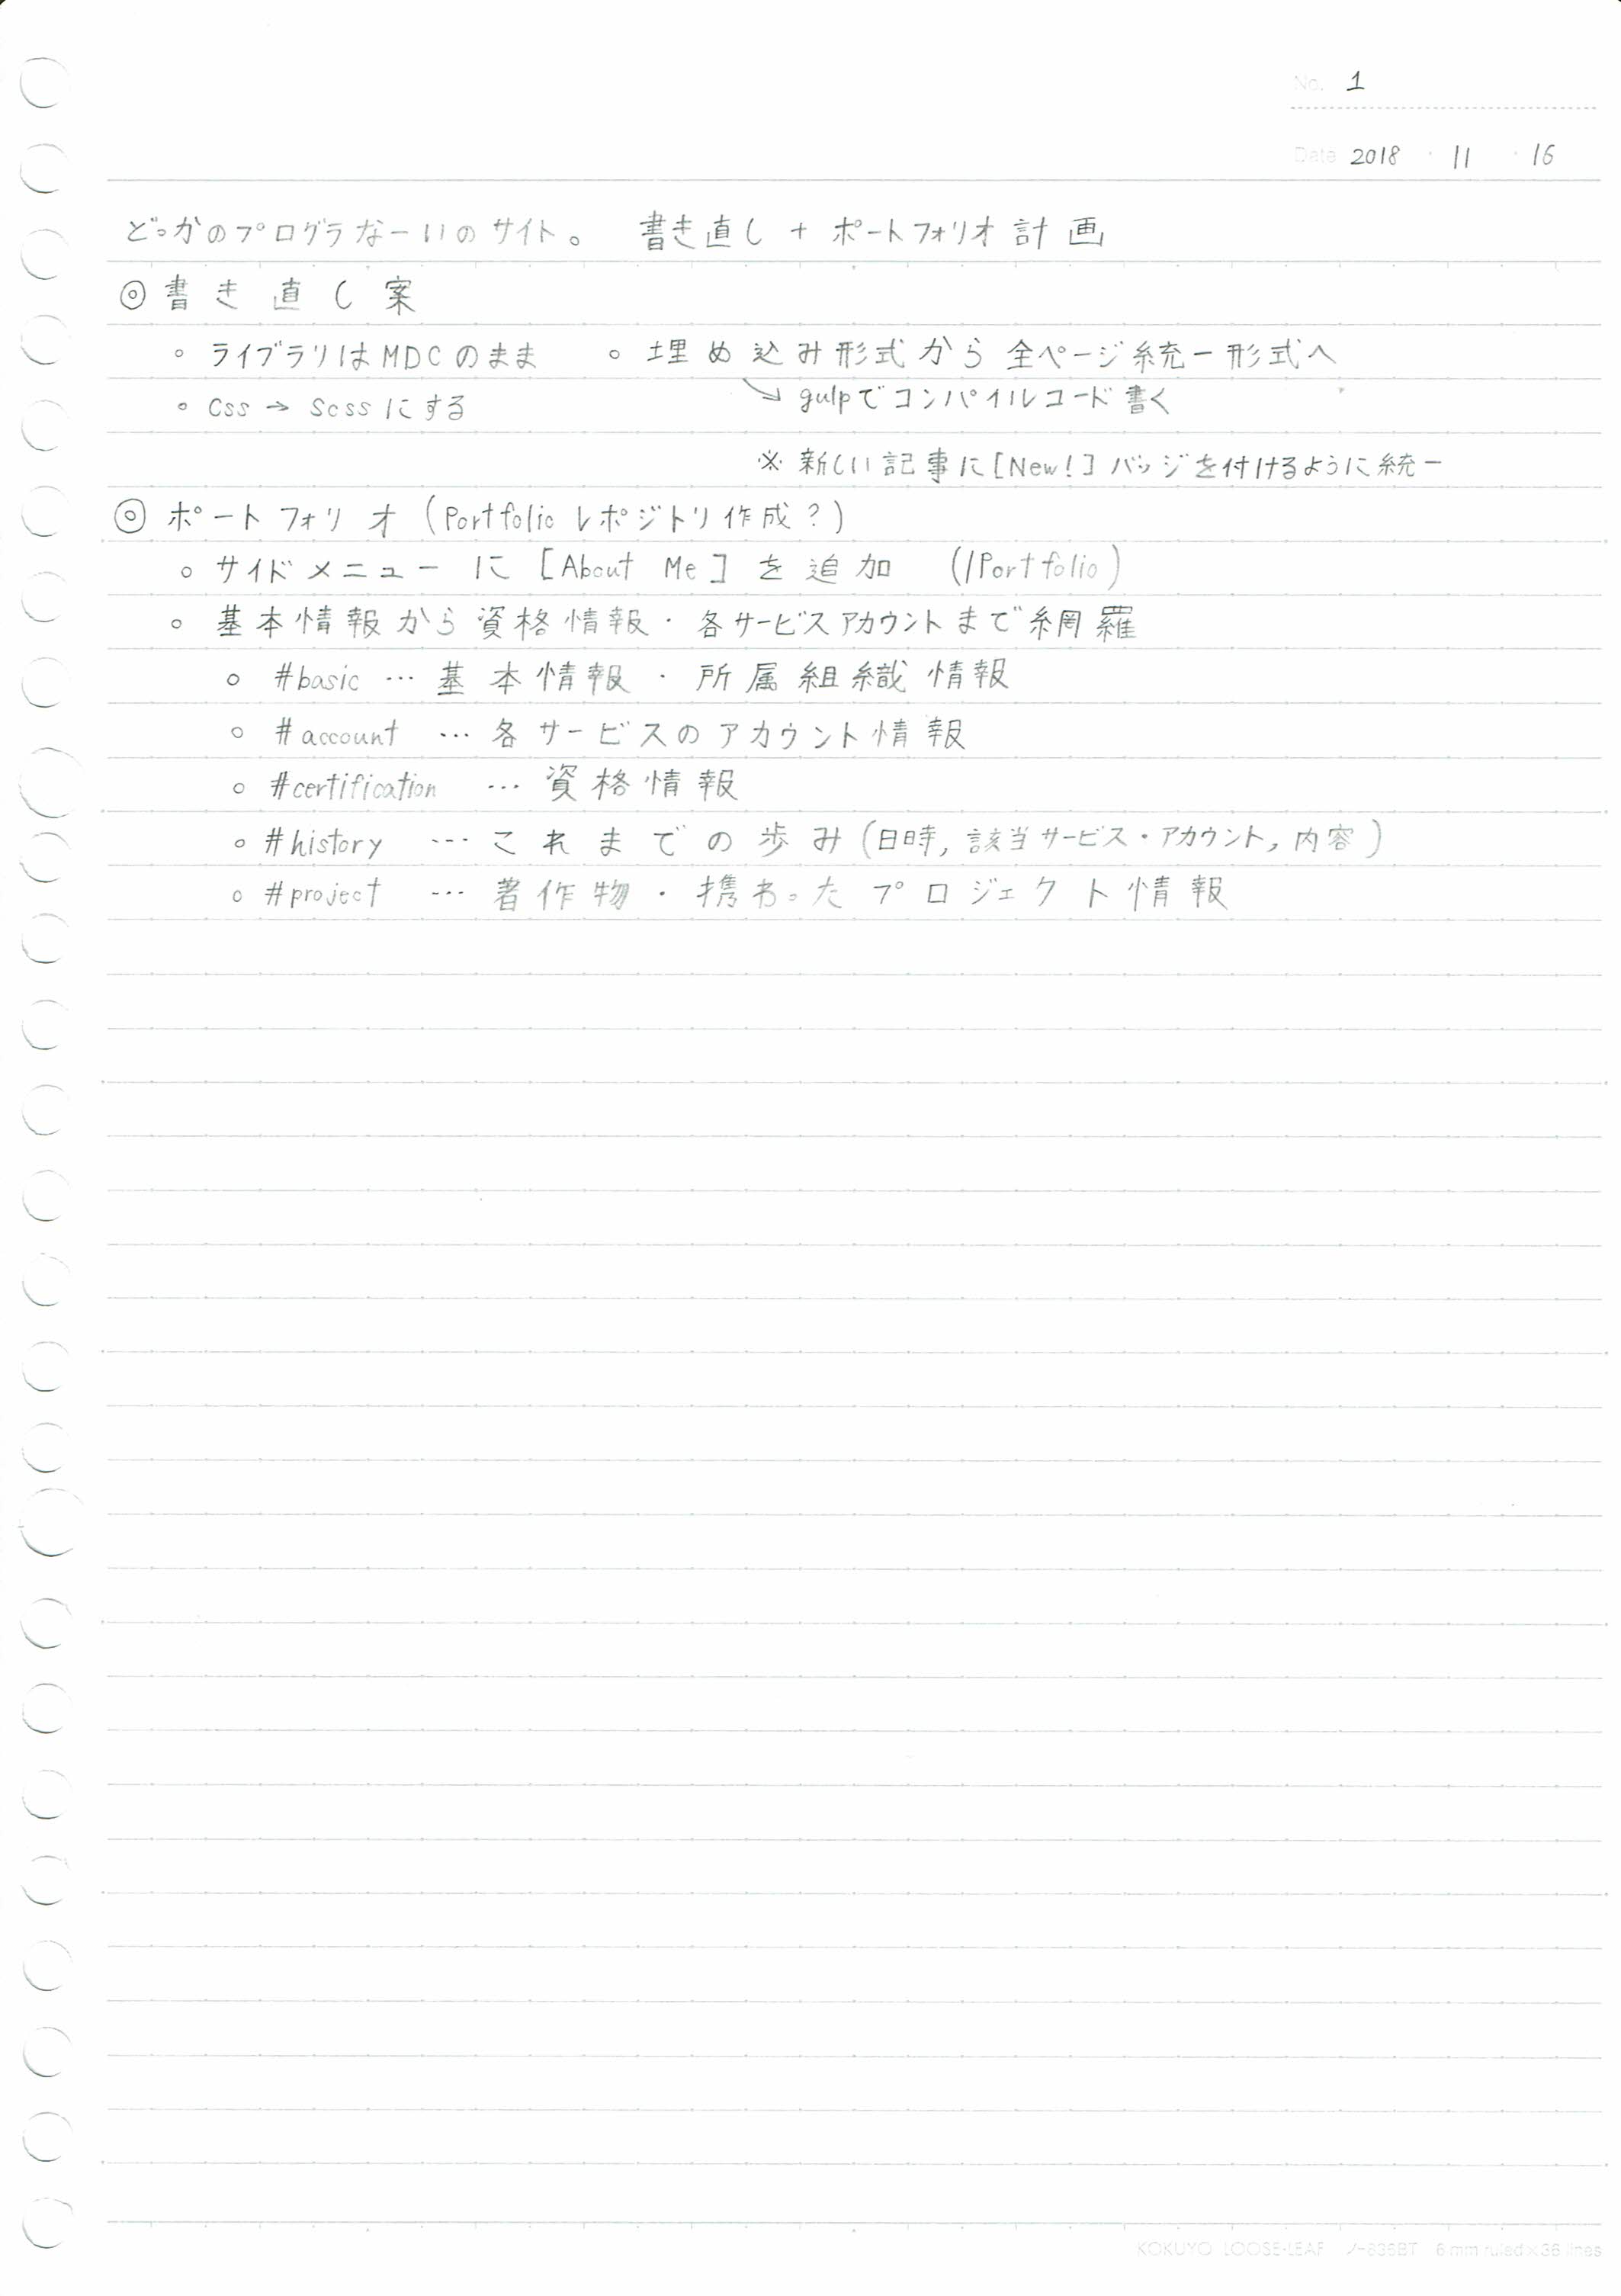 No. 1
Date 2018 ・ 11 ・ 16
どっかのプログラなーいのサイト。 書き直し + ポートフォリオ計画
◎ 書き直し案
○ ライブラリはMDCのまま ○ 埋め込み形式から全ページ統一形式へ
↘ gulpでコンパイルコード書く
○ Css → Scssにする
※ 新しい記事に[New!]バッジを付けるように統一
◎ ポートフォリオ (Portfolio レポジトリ作成?)
○ サイドメニューに [About Me] を追加 (/Portfolio)
○ 基本情報から資格情報・各サービスアカウントまで網羅
○ #basic … 基本情報・所属組織情報
○ #account … 各サービスのアカウント情報
○ #certification … 資格情報
○ #history … これまでの歩み (日時, 該当サービス・アカウント, 内容)
○ #project … 著作物・携わったプロジェクト情報
KOKUYO LOOSE-LEAF ノ-836BT 6 mm ruled×36 lines